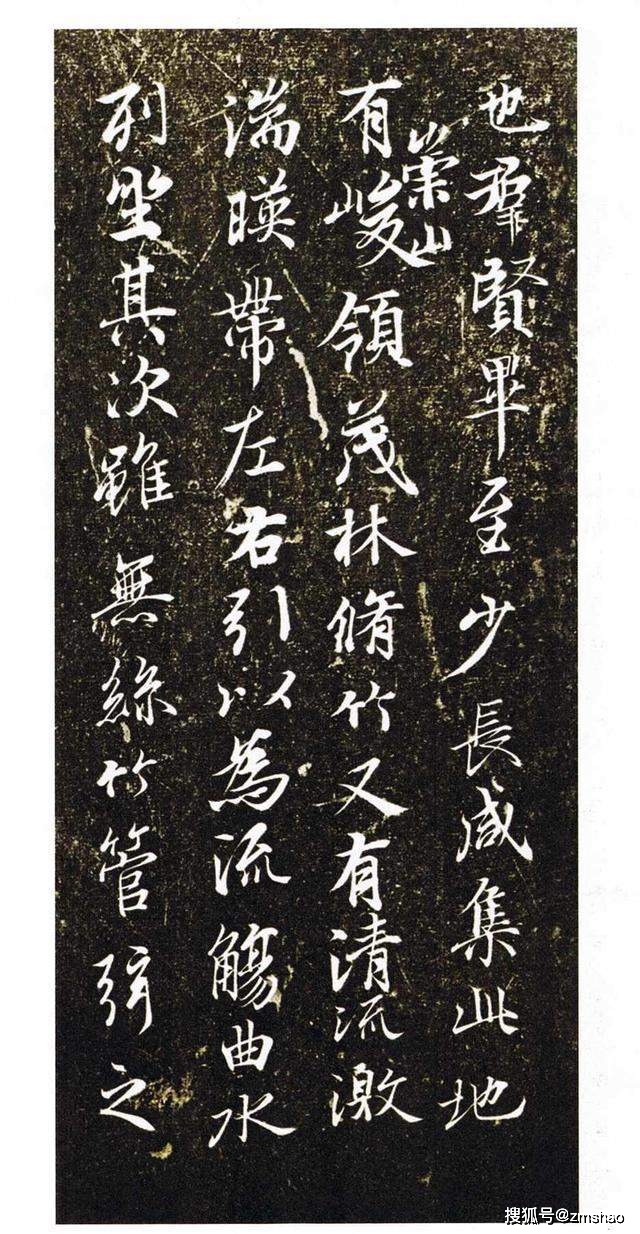 也羣賢畢至少長咸集此地
有崇山峻領茂林脩竹又有清流激
湍暎帶左右引以為流觴曲水
列坐其次雖無絲竹管弦之
搜狐号@zmshao